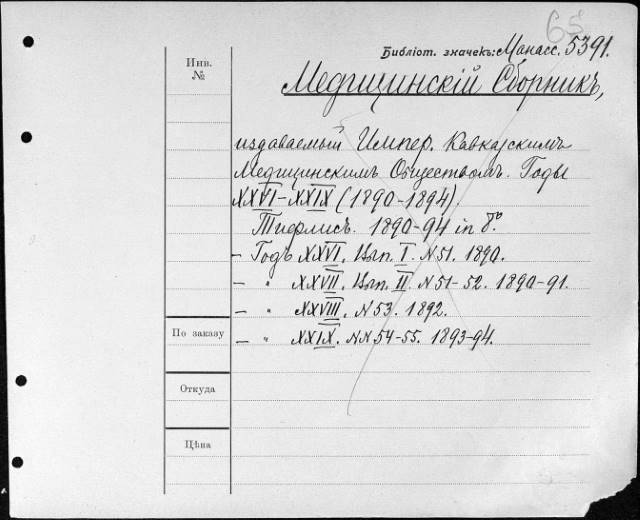 65
Библіот. значекъ: Манасс. 5391.
Инв.
№
Медицинскій Сборникъ,
издаваемый Импер. Кавказскимъ
Медицинскимъ Обществомъ. Годы
XXVI-XXIX (1890-1894).
Тифлисъ. 1890-94 in 8°.
- Годъ XXVI. Вып. I. N 51. 1890.
- " XXVII. Вып. II. N 51-52. 1890-91.
- " XXVIII. N 53. 1892.
- " XXIX. NN 54-55. 1893-94.
По заказу
Откуда
Цѣна